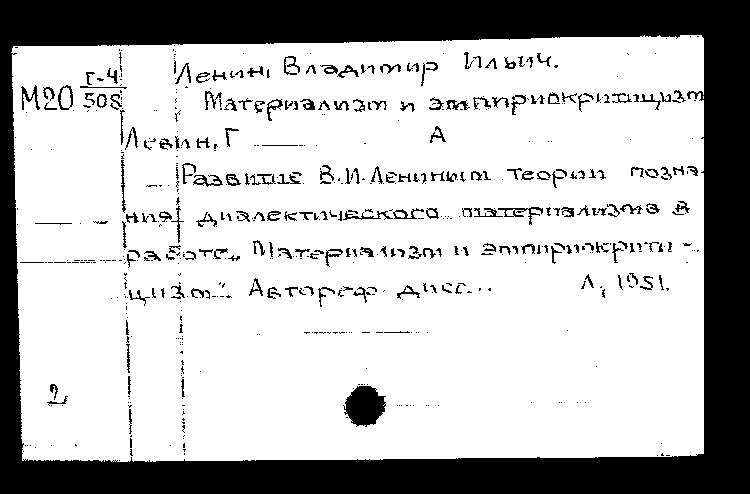 Г-4
М20 508
Ленин, Владимир Ильич.
Материализм и эмпириокритицизм
Левин, Г А
Развитие В.И.Лениным теории позна-
ния диалектического материализма в
работе „Материализм и эмпириокрити-
цизм". Автореф. дисс... Л, 1951.
2